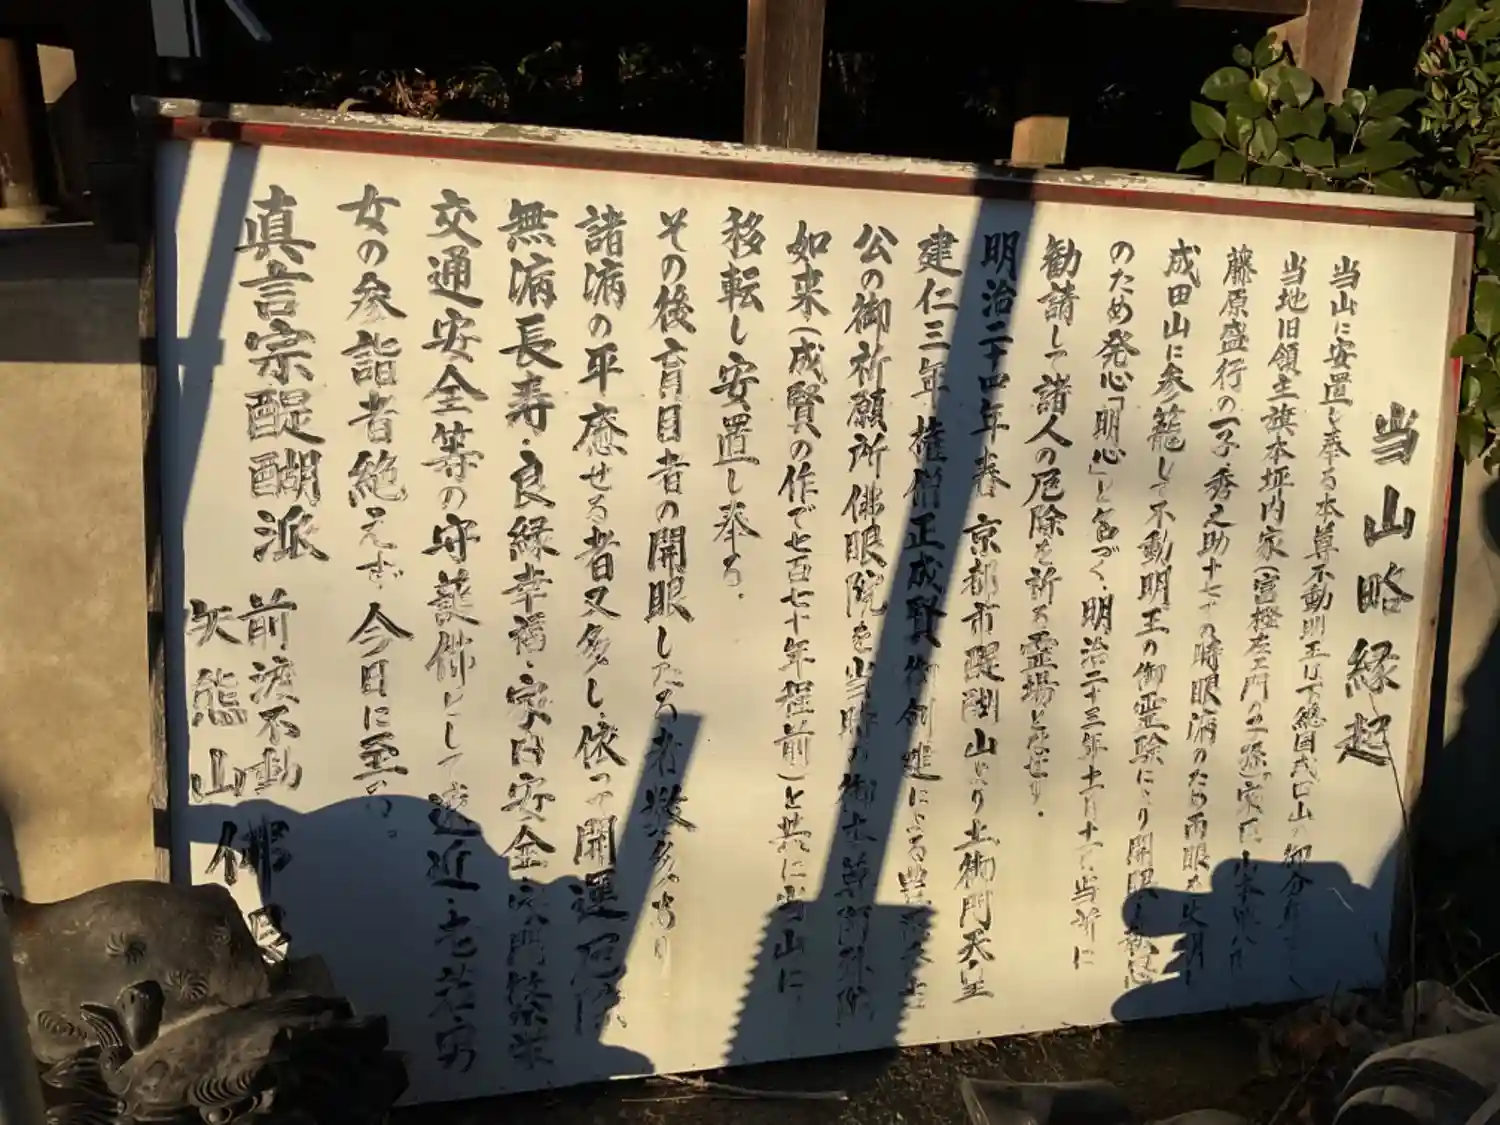 当山略縁起
当山に安置し奉る本尊不動明王は下総国成田山の御分身
当地旧領主旗本坪内家(富樫左エ門の子孫)家臣
藤原盛行の一子秀之助十七才の時眼病のため両眼を失明
成田山に参籠して不動明王の御霊験により開眼
のため発心「明心」と名づく、明治二十三年十一月十一日当所に
勧請して諸人の厄除を祈る霊場と
明治二十四年春 京都市醍醐山より土御門天皇
建仁三年 権僧正成賢御創建による
公の御祈願所佛眼院を当時の御本尊
如来(成賢の作で七百七十年程前)と共に当山に
移転し安置し奉る.
その後盲目者の開眼したる者数多あり
諸病の平癒せる者又多し.依って開運厄除
無病長寿・良縁幸福・家内安全・家門繁栄
交通安全等の守護佛として遠近・老若男
女の参詣者絶えず今日に至る。
真言宗醍醐派 前渡不動
矢熊山 佛眼